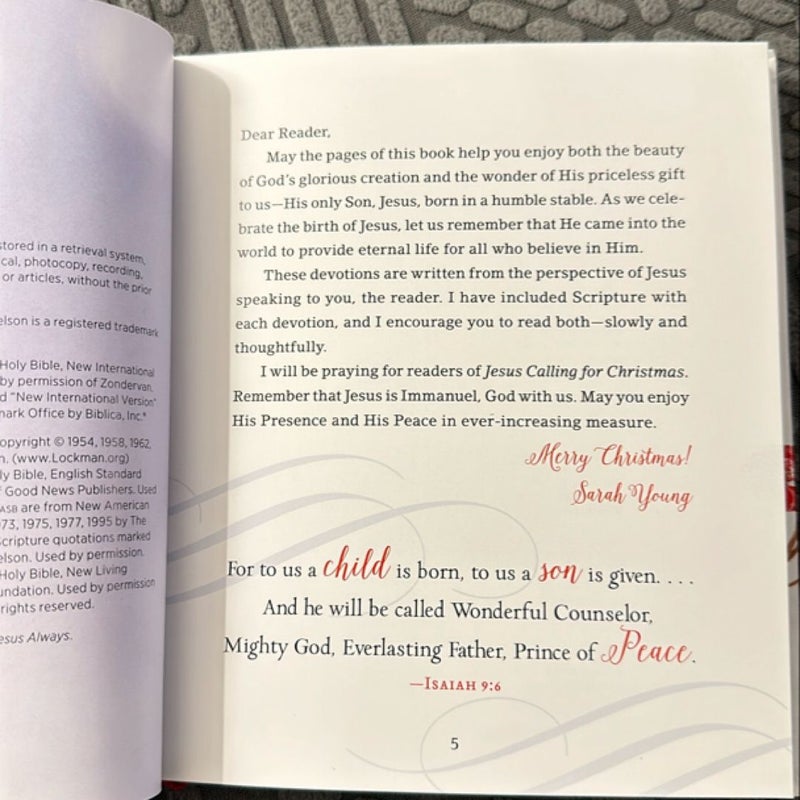 stored in a retrieval system,
cal, photocopy, recording,
or articles, without the prior
elson is a registered trademark
Holy Bible, New International
by permission of Zondervan.
d "New International Version"
mark Office by Biblica, Inc.®
opyright © 1954, 1958, 1962,
n. (www.Lockman.org)
ly Bible, English Standard
f Good News Publishers. Used
ASB are from New American
73, 1975, 1977, 1995 by The
Scripture quotations marked
elson. Used by permission.
Holy Bible, New Living
undation. Used by permission
rights reserved.
esus Always.
Dear Reader,
May the pages of this book help you enjoy both the beauty
of God's glorious creation and the wonder of His priceless gift
to us—His only Son, Jesus, born in a humble stable. As we cele-
brate the birth of Jesus, let us remember that He came into the
world to provide eternal life for all who believe in Him.
These devotions are written from the perspective of Jesus
speaking to you, the reader. I have included Scripture with
each devotion, and I encourage you to read both—slowly and
thoughtfully.
I will be praying for readers of Jesus Calling for Christmas.
Remember that Jesus is Immanuel, God with us. May you enjoy
His Presence and His Peace in ever-increasing measure.
Merry Christmas!
Sarah Young
For to us a child is born, to us a son is given. . . .
And he will be called Wonderful Counselor,
Mighty God, Everlasting Father, Prince of Peace.
—ISAIAH 9:6
5